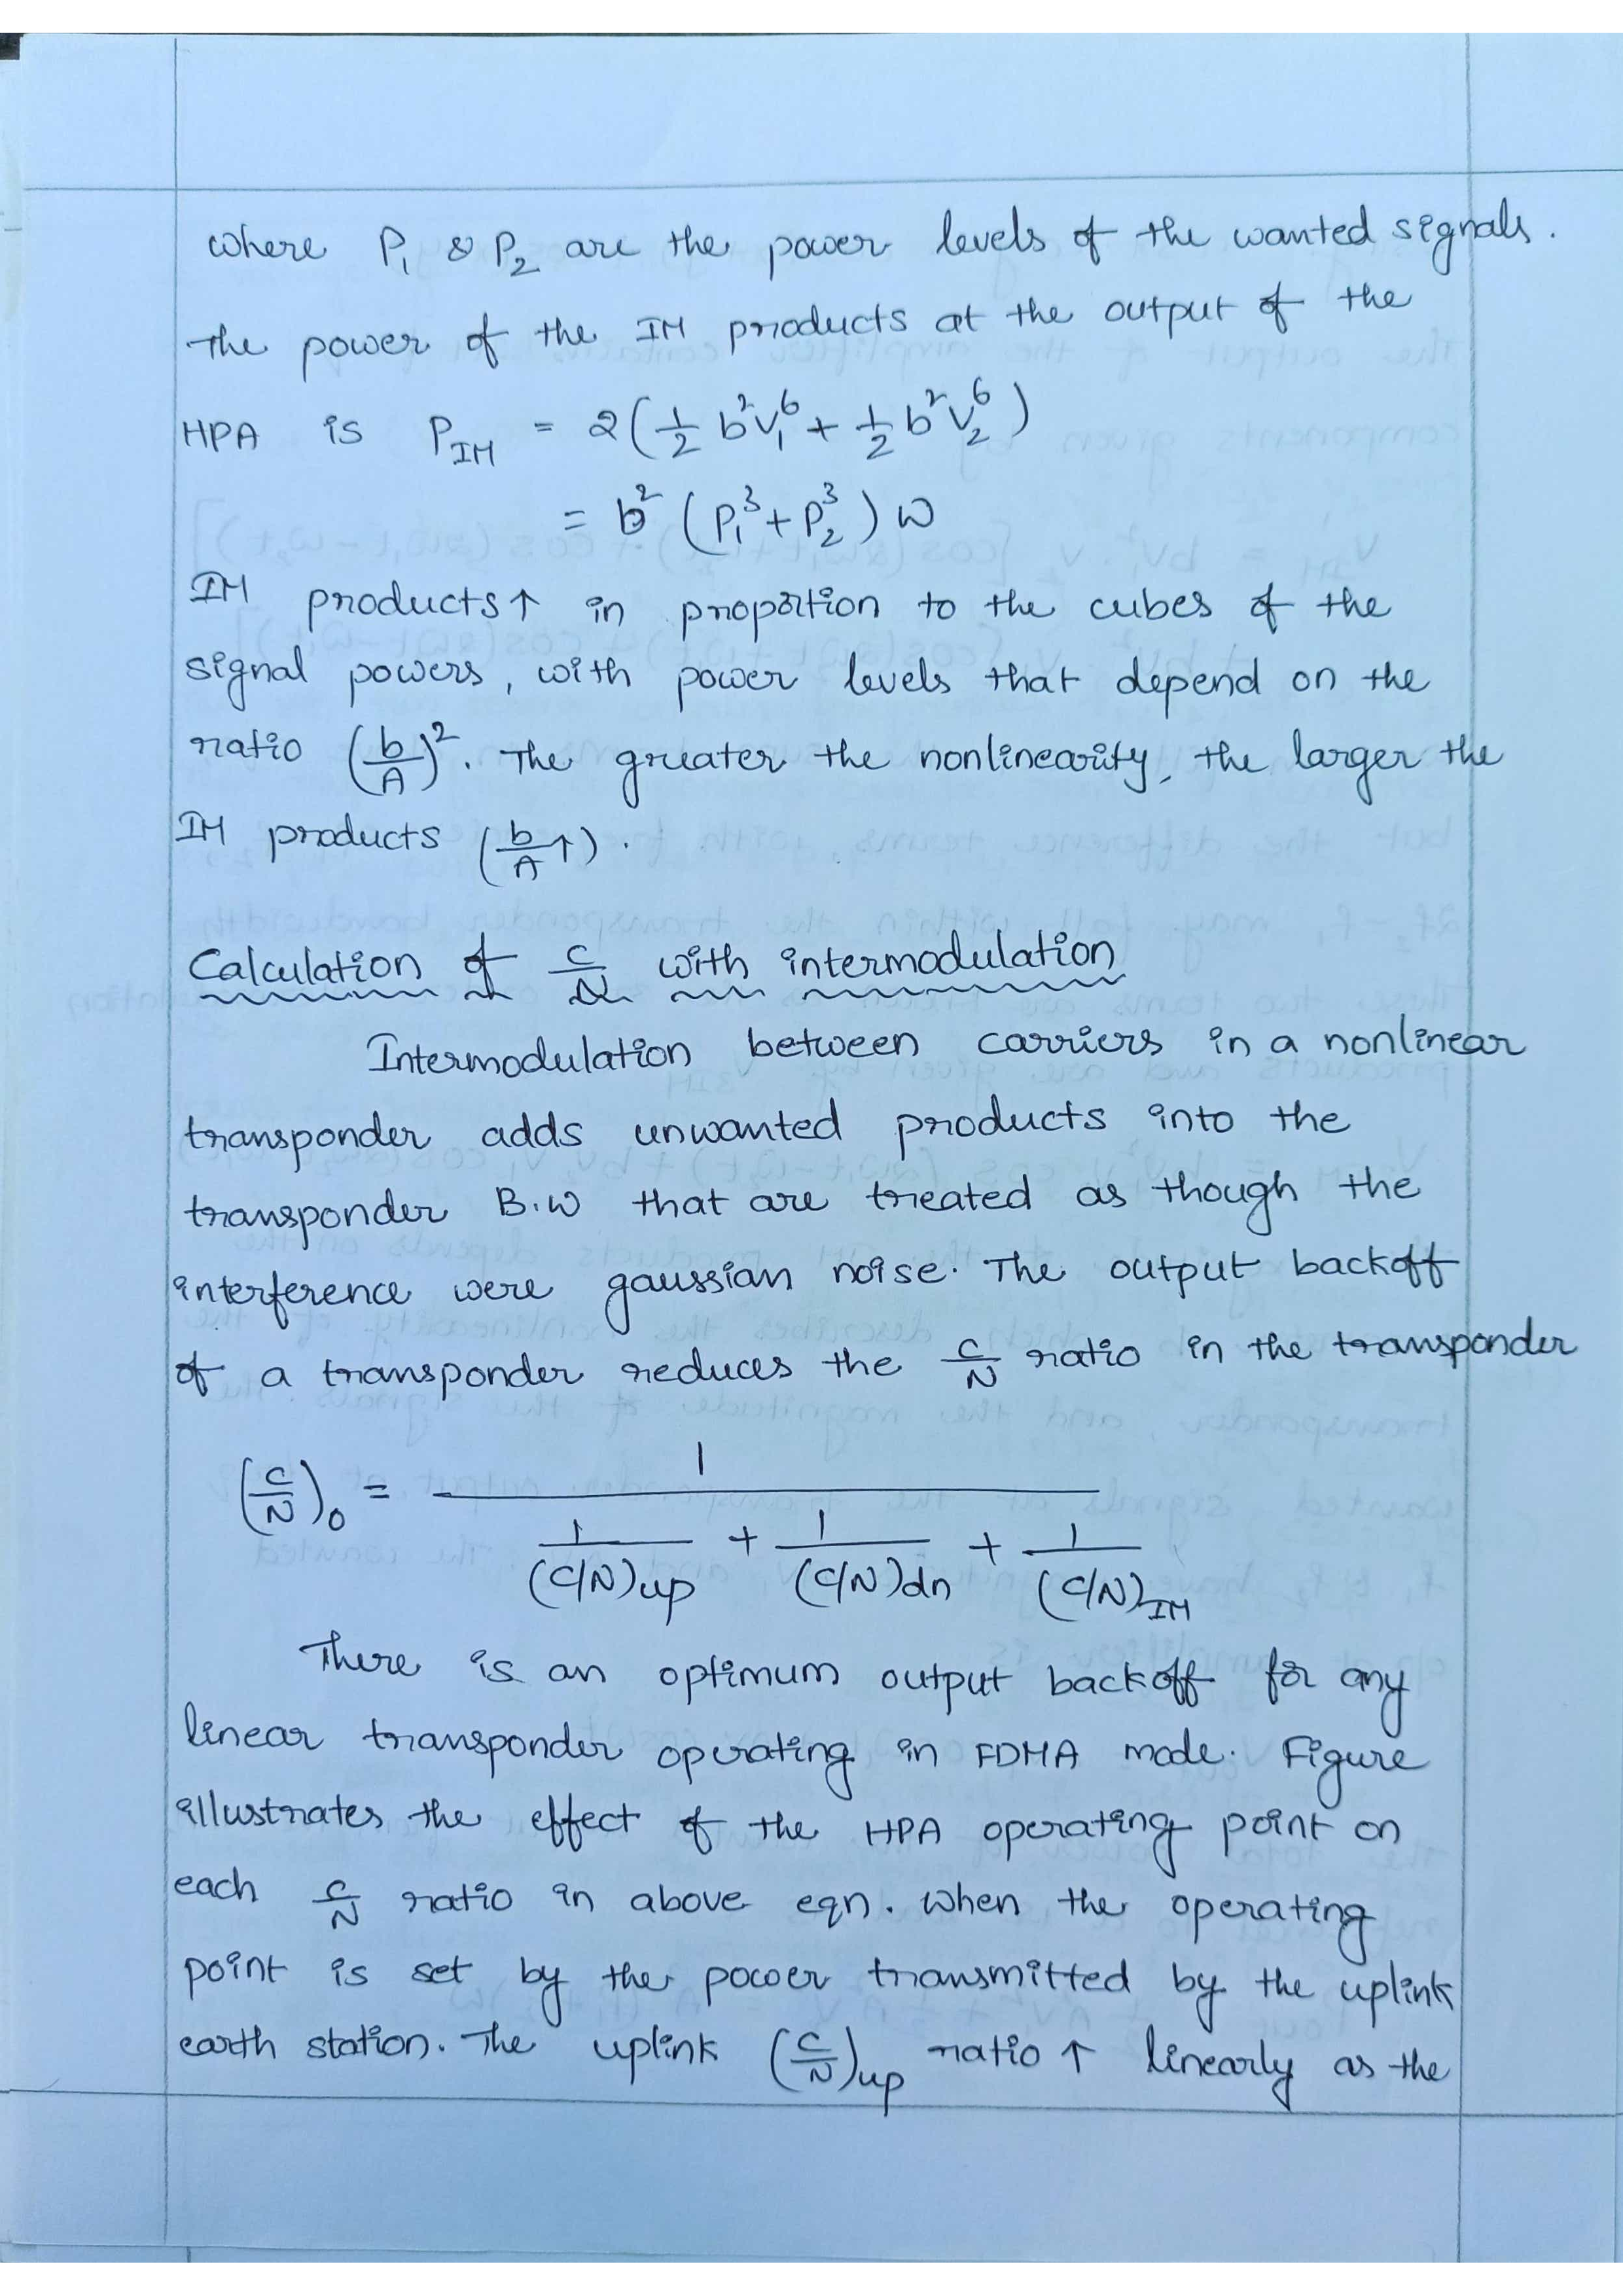 where P₁ & P₂ are the power levels of the wanted signals.
The power of the IM products at the output of the
HPA is P_IM = 2(½ b²V₁⁶ + ½ b²V₂⁶)
= b² (P₁³+P₂³) W
IM products↑ in proportion to the cubes of the
signal powers, with power levels that depend on the
ratio (b/A)². The greater the nonlinearity, the larger the
IM products (b/A↑).
Calculation of C/N with intermodulation
Intermodulation between carriers in a nonlinear
transponder adds unwanted products into the
transponder B.W that are treated as though the
interference were gaussian noise. The output backoff
of a transponder reduces the C/N ratio in the transponder
(C/N)₀ = 1 / (1/(C/N)up + 1/(C/N)dn + 1/(C/N)IM)
There is an optimum output backoff for any
linear transponder operating in FDMA mode. Figure
illustrates the effect of the HPA operating point on
each C/N ratio in above eqn. When the operating
point is set by the power transmitted by the uplink
earth station. The uplink (C/N)up ratio ↑ linearly as the